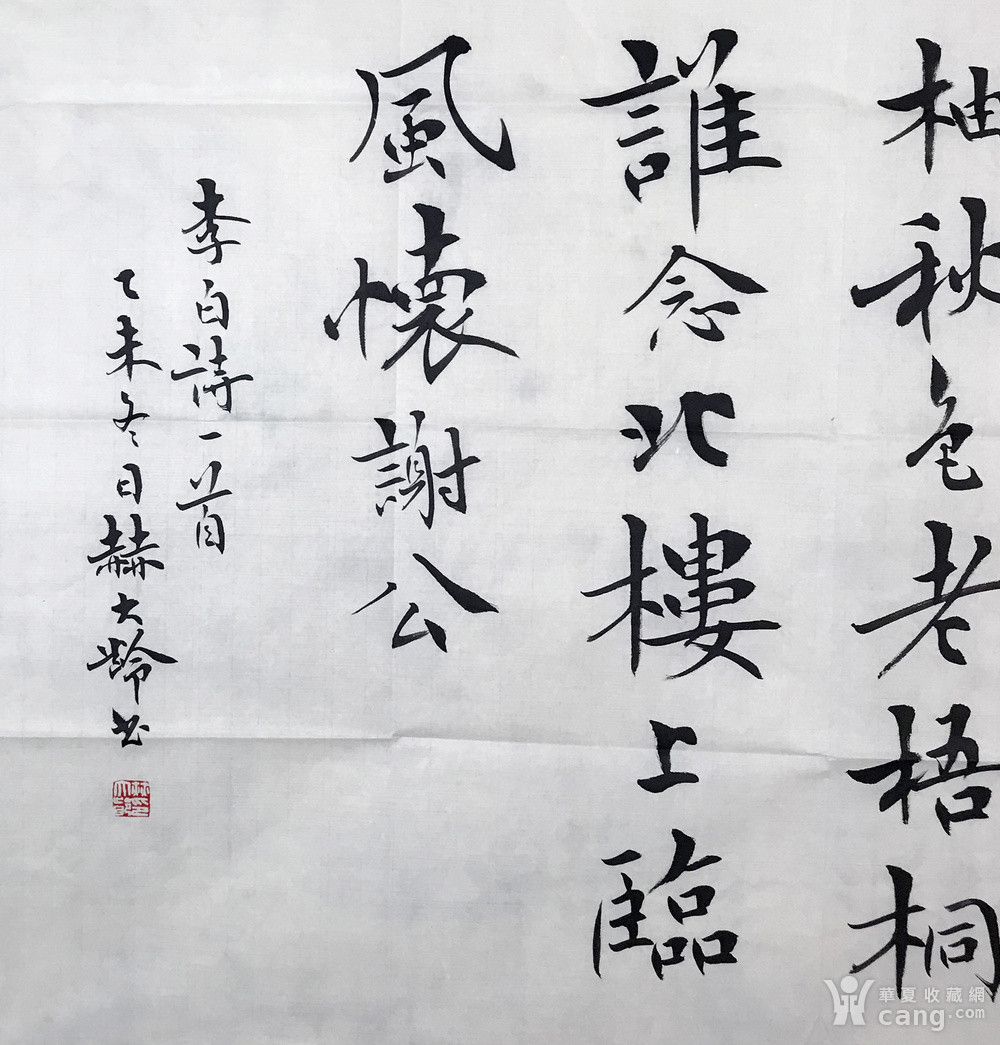 柚秋色老梧桐
誰念北樓上臨
風懷謝公
李白詩一首
乙未冬日赫大齡书
華夏收藏網
cang.com